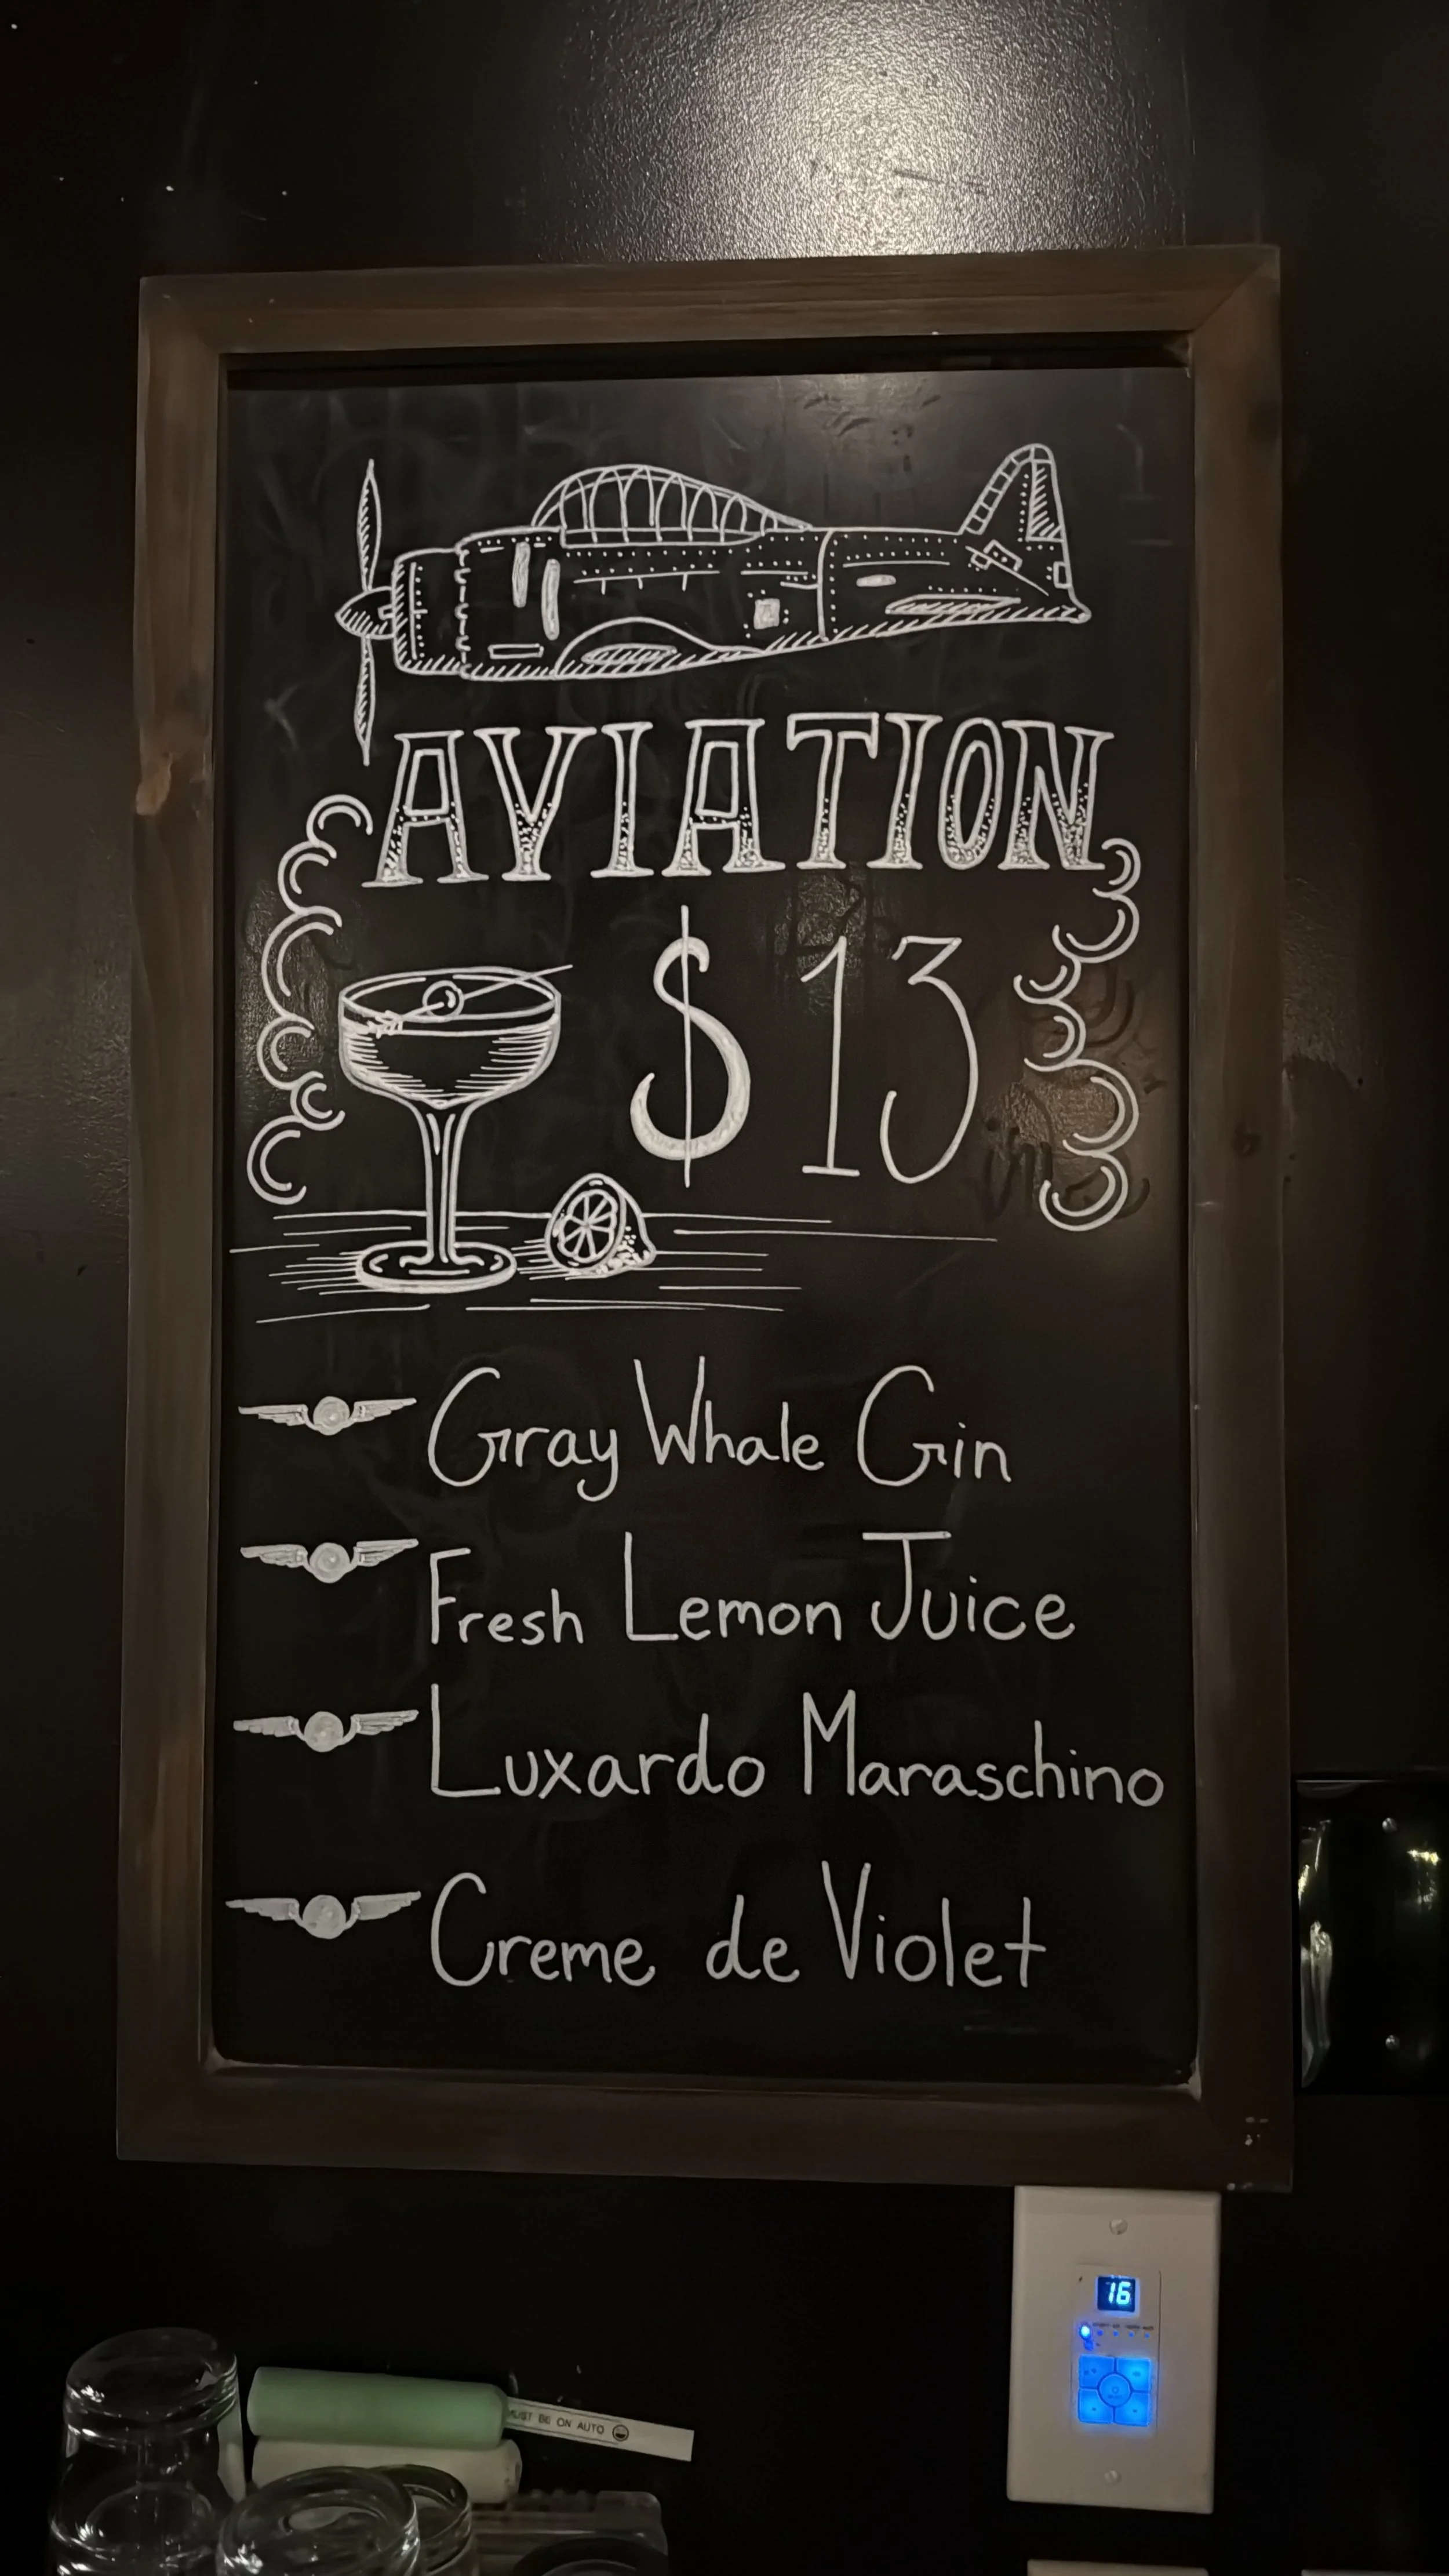 AVIATION
$13
Gray Whale Gin
Fresh Lemon Juice
Luxardo Maraschino
Creme de Violet
16
MUST BE ON AUTO